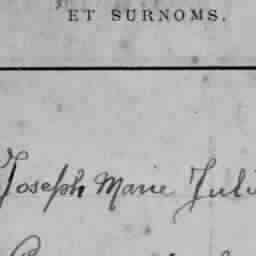 ET SURNOMS.
Joseph Marie Juli